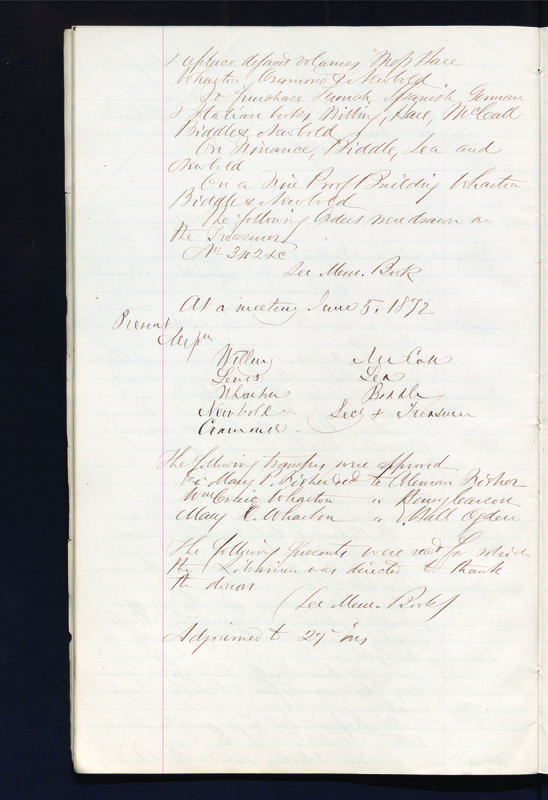 & replace defaced volumes Messrs Hare
Wharton, Cramond & Newbold
To purchase French, Spanish German
& Italian books, Willing, Hare, McCall
Biddle & Newbold
On Finance, Biddle, Lea and
Newbold
On a Fire Proof Building Wharton
Biddle & Newbold
The following Orders were drawn on
the Treasurer
No 342 &c
See Mem. Book
At a meeting June 5. 1872
Present
Messrs
Willing McCall
Lewis Lea
Wharton Biddle
Newbold Secy & Treasurer
Cramond
The following transfers were approved
Mary P. Fisher decd to Coleman Fisher
Wm Craig Wharton " Henry Carson
Mary C. Wharton " Hall Ogden
The following presents were read for which
the Librarian was directed to thank
the donors
(See Mem. Book)
Adjourned to 27 ins